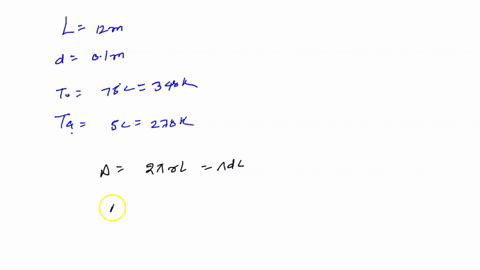 L = 12m
d = 0.1m
T₀ = 75°C = 348K
Ta = 5C = 278K
A = 2πrL = πdL